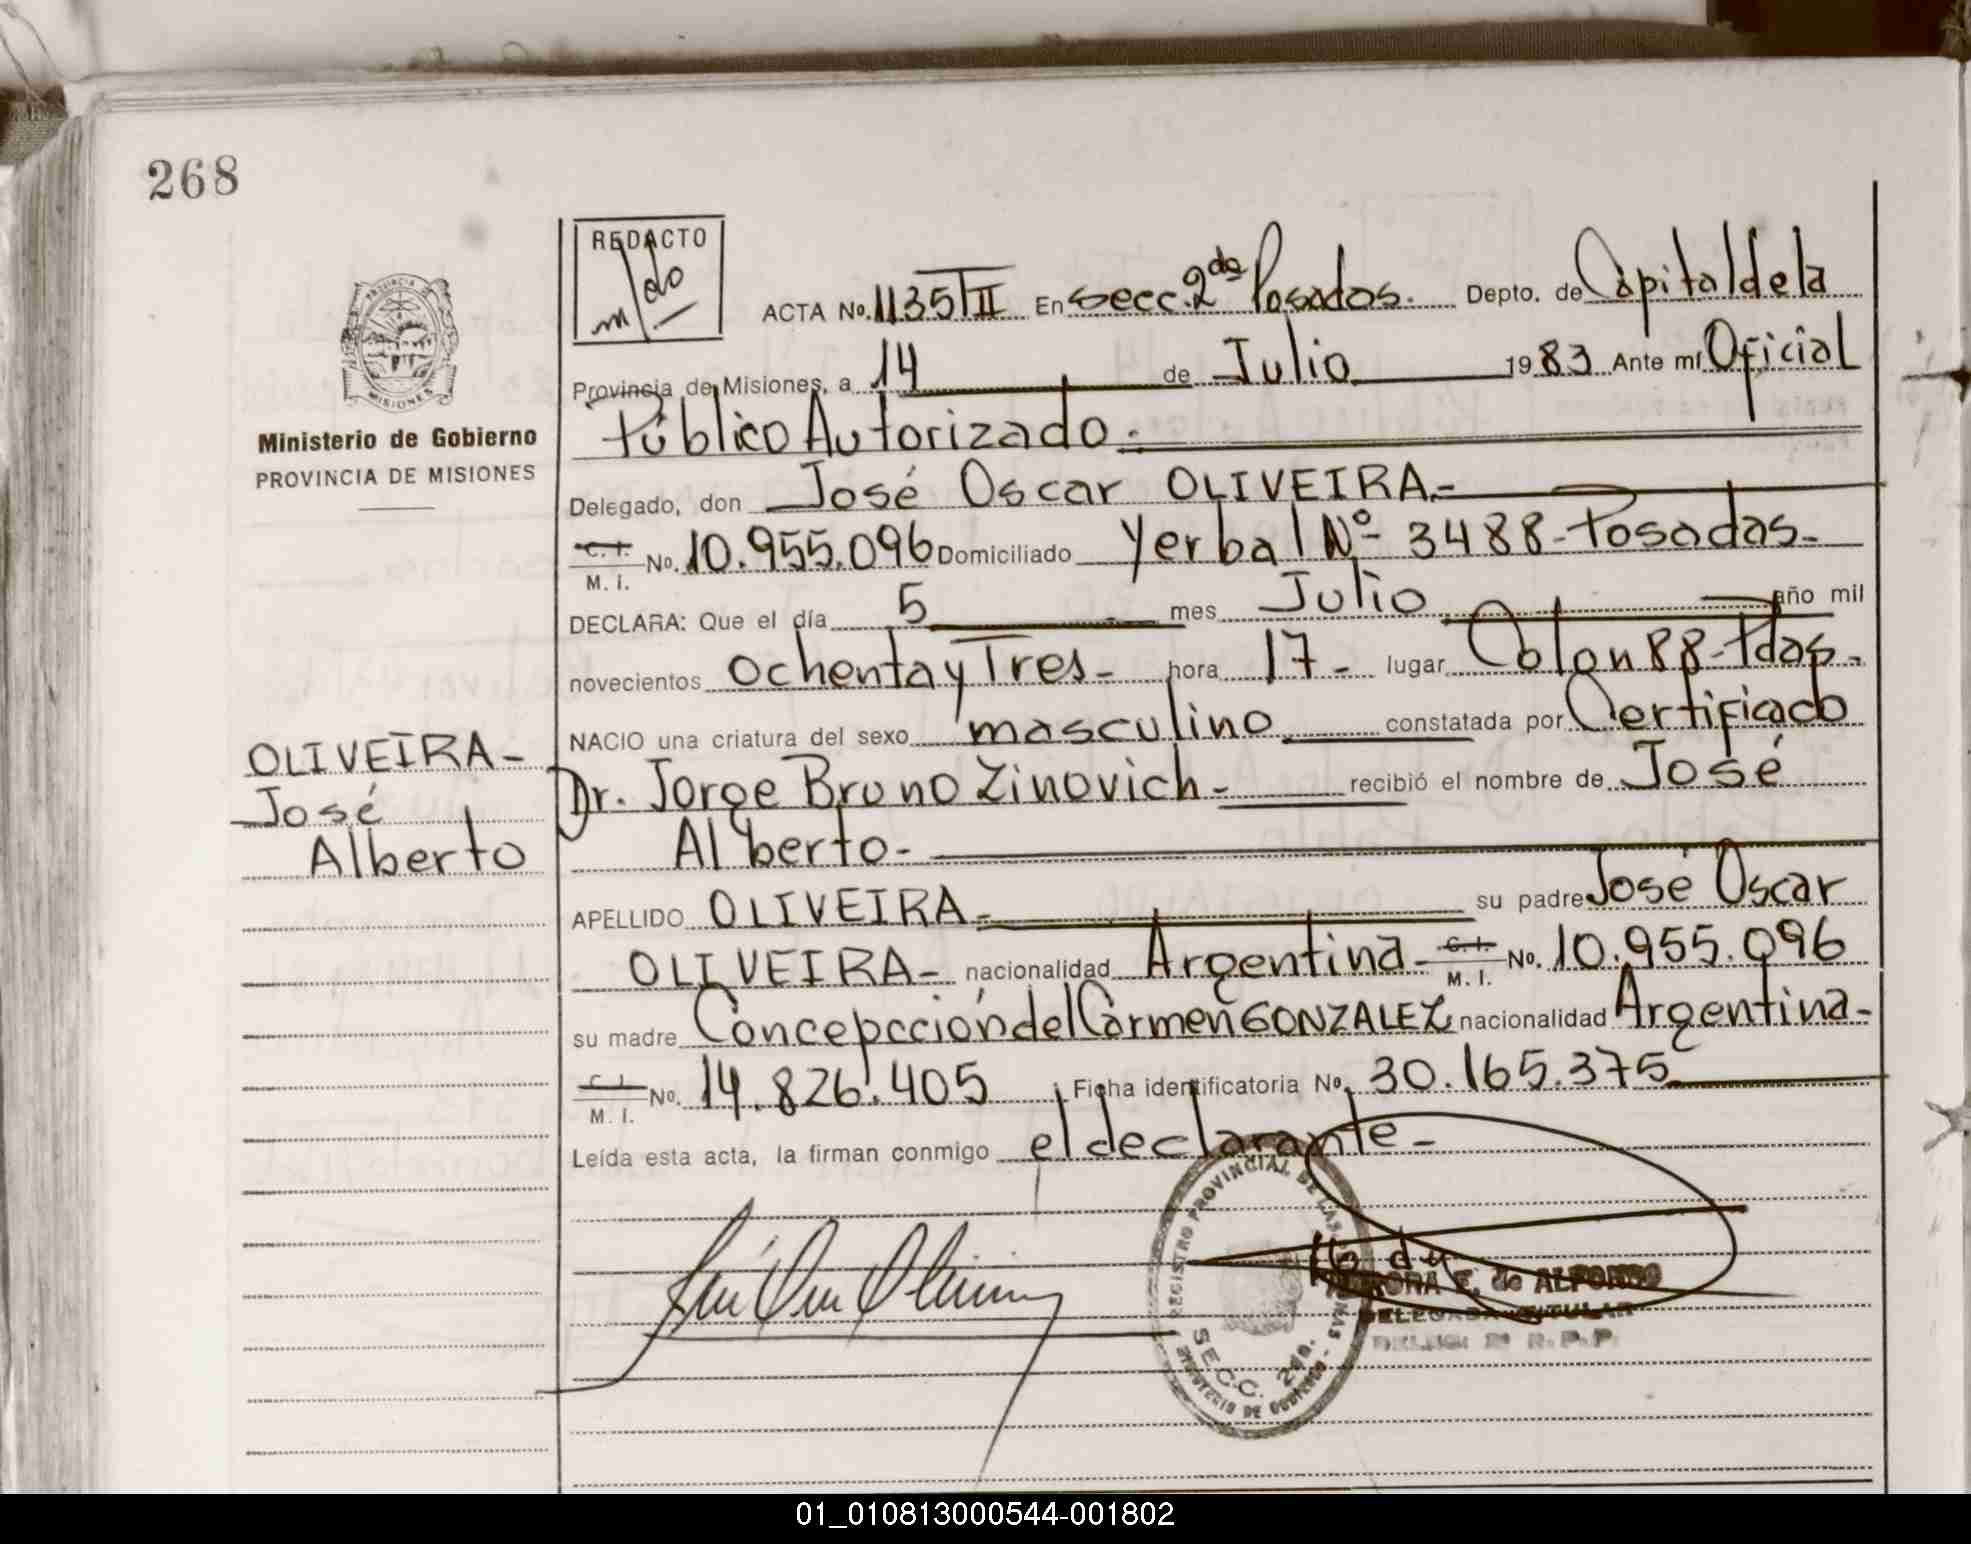 268
REDACTO
PROVINCIA DE MISIONES
Ministerio de Gobierno
PROVINCIA DE MISIONES
ACTA No. 1135 T II En Secc. 2da Posadas. Depto. de Capital de la
Provincia de Misiones, a 14 de Julio 1983 Ante mí Oficial
Público Autorizado.
Delegado, don José Oscar OLIVEIRA.-
C. I. M. I. No. 10.955.096 Domiciliado Yerbal Nº 3488-Posadas-
DECLARA: Que el día 5 mes Julio año mil
novecientos ochenta y Tres- hora 17- lugar Colon 88-Pdas-
NACIO una criatura del sexo masculino constatada por Certificado
OLIVEIRA-
José
Alberto
Dr. Jorge Bruno Zinovich- recibió el nombre de José
Alberto-
APELLIDO OLIVEIRA- su padre José Oscar
OLIVEIRA- nacionalidad Argentina- C. I. M. I. No. 10.955.096
su madre Concepcción del Carmen GONZALEZ nacionalidad Argentina-
C. I. M. I. No. 14.826.405 Ficha identificatoria No. 30.165.375
Leída esta acta, la firman conmigo el declarante-
REGISTRO PROVINCIAL DE LAS PERSONAS
SECC. 2da.
MINISTERIO DE GOBIERNO
E. de ALFONSO
DELEGADA TITULAR
R. P. P.
01_010813000544-001802